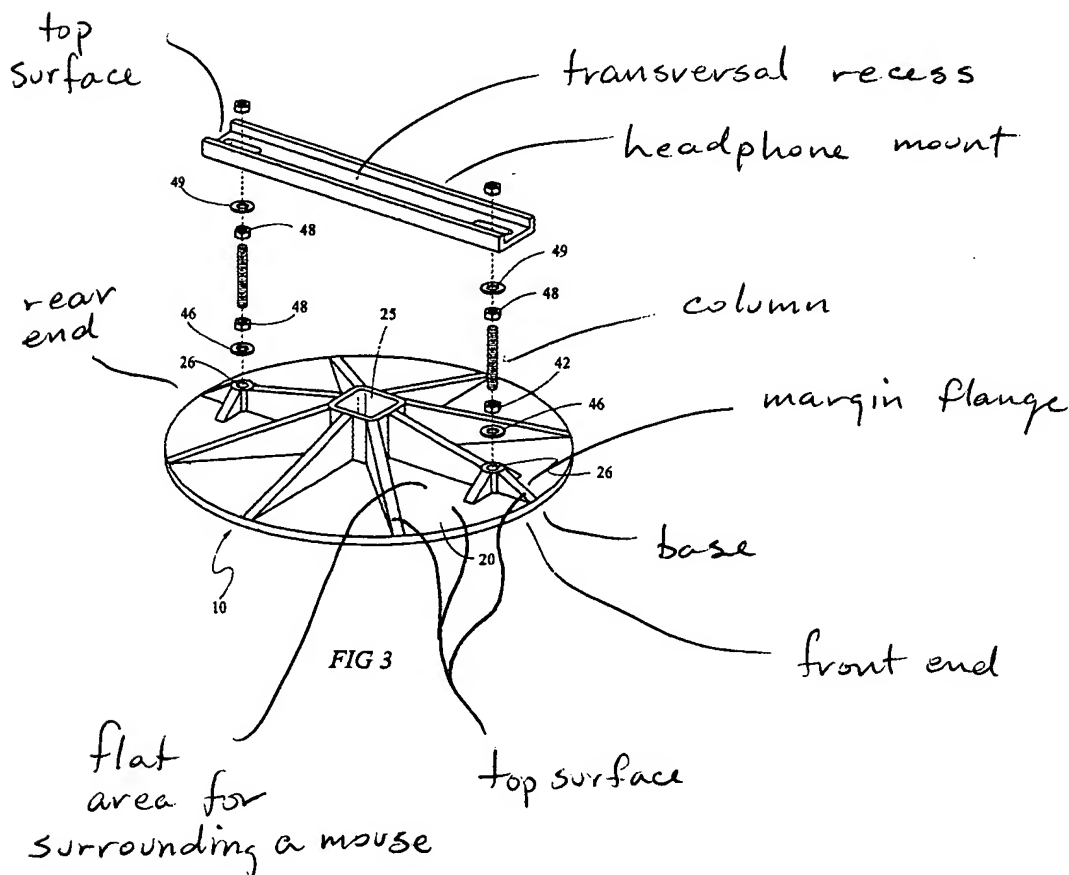 top
surface
transversal recess
headphone mount
49
48
49
rear
end
48
46
25
48
column
26
42
46
margin flange
26
base
20
10
FIG 3
front end
flat
area for
surrounding a mouse
top surface